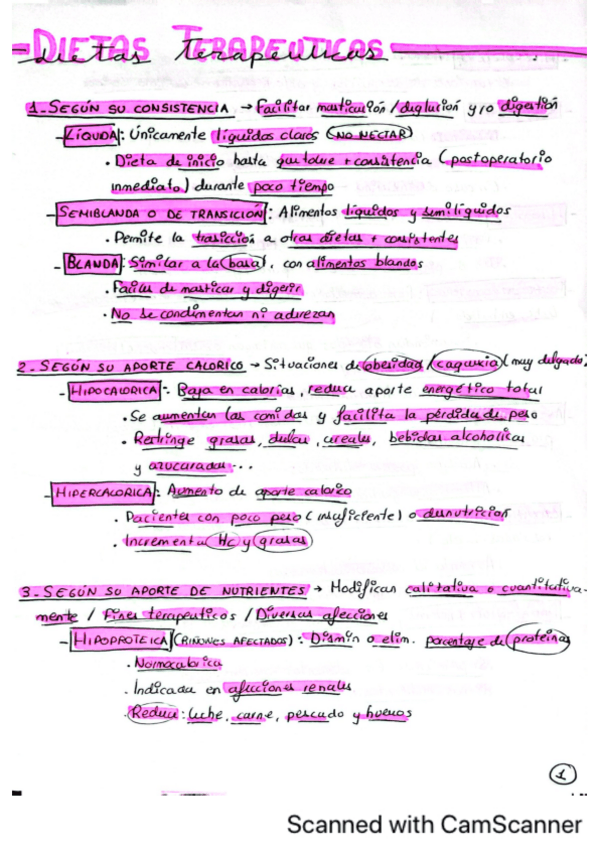 DIETAS TERAPEUTICAS
1.- SEGÚN SU CONSISTENCIA → Facilitar masticación / deglución y/o digestión
- LÍQUIDA: Únicamente líquidos claros (NO NECTAR)
· Dieta de inicio hasta que tolere + consistencia (postoperatorio
inmediato) durante poco tiempo
- SEMIBLANDA O DE TRANSICIÓN: Alimentos líquidos y semilíquidos
· Permite la transición a otras dietas + consistentes
- BLANDA: Similar a la (basal), con alimentos blandos
· Fáciles de masticar y digerir
· No se condimentan ni aderezan
2.- SEGÚN SU APORTE CALORICO → Situaciones de obesidad / caquexia (muy delgado)
- HIPOCALORICA: Baja en calorías, reduce aporte energético total
· Se aumentan las comidas y facilita la pérdida de peso
· Restringe grasas, dulces, cereales, bebidas alcoholicas
y azucaradas...
- HIPERCALORICA: Aumento de aporte calorico
· Pacientes con poco peso (insuficiente) o desnutricion
· Incrementa HC y grasas
3.- SEGÚN SU APORTE DE NUTRIENTES → Modifican calitativa o cuantitativa-
mente / Fines terapeuticos / Diversas afecciones
- HIPOPROTEICA (RIÑONES AFECTADOS): Dismin o elim. porcentaje de proteinas
· Normocalorica
· Indicada en afecciones renales
· Reduce: leche, carne, pescado y huevos
1
Scanned with CamScanner